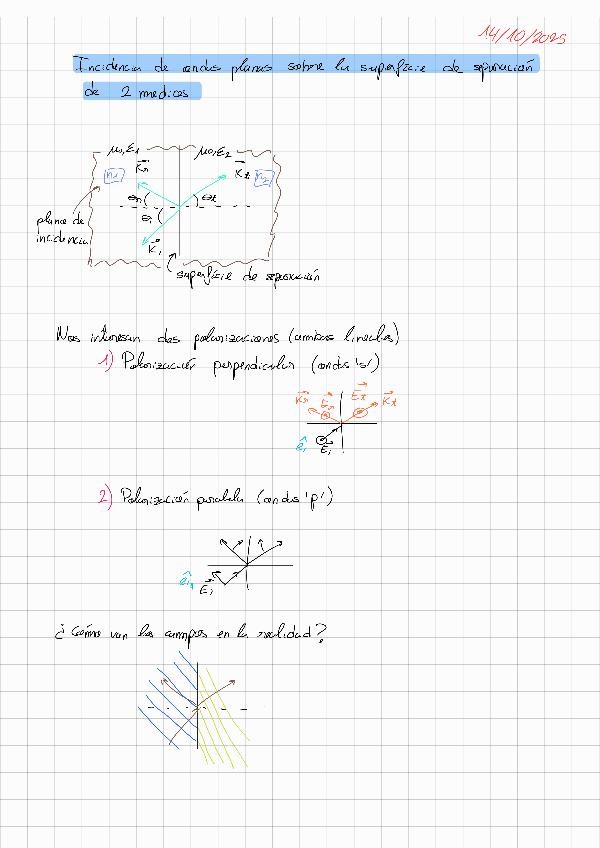 14/10/2025
Incidencia de ondas planas sobre la superficie de separación
de 2 medios
μ₀,ε₁ μ₀,ε₂
Kr Kt
n1 n2
θr θt
θi
plano de
incidencia
Ki
superficie de separación
Nos interesan dos polarizaciones (ambas lineales)
1) Polarización perpendicular (ondas 's')
Kr Er Et Kt
êi Ei
2) Polarización paralela (ondas 'p')
Ei
¿Cómo van los campos en la realidad?